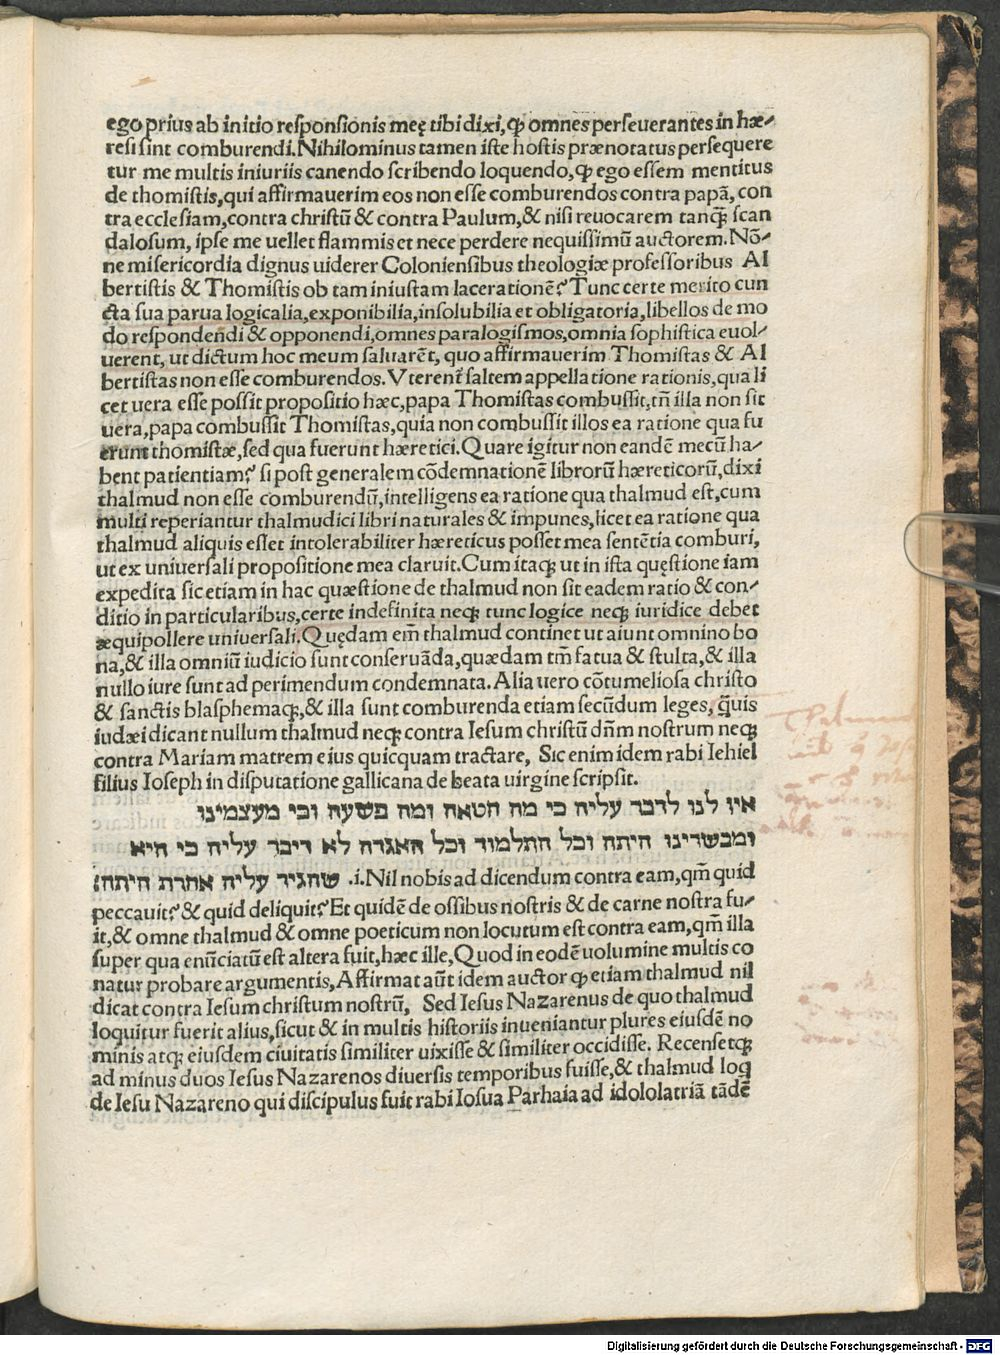 ego prius ab initio responsionis meę tibi dixi, ꝙ omnes perseuerantes in hæ-
resi sint comburendi. Nihilominus tamen iste hostis prænotatus persequere
tur me multis iniuriis canendo scribendo loquendo, ꝙ ego essem mentitus
de thomistis, qui affirmauerim eos non esse comburendos contra papā, con
tra ecclesiam, contra christū & contra Paulum, & nisi reuocarem tanqꝫ scan
dalosum, ipse me uellet flammis et nece perdere nequissimū auctorem. Nō-
ne misericordia dignus uiderer Coloniensibus theologiæ professoribus Al
bertistis & Thomistis ob tam iniustam lacerationē? Tunc certe merito cun
cta sua parua logicalia, exponibilia, insolubilia et obligatoria, libellos de mo
do respondendi & opponendi, omnes paralogismos, omnia sophistica euol-
uerent, ut dictum hoc meum saluarēt, quo affirmauerim Thomistas & Al
bertistas non esse comburendos. Vterent̄ saltem appellatione rationis, qua li
cet uera esse possit propositio hæc, papa Thomistas combussit, tñ illa non sit
uera, papa combussit Thomistas, quia non combussit illos ea ratione qua fu
erunt thomistæ, sed qua fuerunt hæretici. Quare igitur non eandē mecū ha-
bent patientiam? si post generalem cōdemnationē librorū hæreticorū, dixi
thalmud non esse comburendū, intelligens ea ratione qua thalmud est, cum
multi reperiantur thalmudici libri naturales & impunes, licet ea ratione qua
thalmud aliquis esset intolerabiliter hæreticus posset mea sentētia comburi,
ut ex uniuersali propositione mea claruit. Cum itaqꝫ ut in ista quęstione iam
expedita sic etiam in hac quæstione de thalmud non sit eadem ratio & con-
ditio in particularibus, certe indefinita neqꝫ tunc logice neqꝫ iuridice debet
æquipollere uniuersali. Quędam em̄ thalmud continet ut aiunt omnino bo
na, & illa omniū iudicio sunt conseruāda, quædam tm̄ fatua & stulta, & illa
nullo iure sunt ad perimendum condemnata. Alia uero cōtumeliosa christo
& sanctis blasphemaqꝫ, & illa sunt comburenda etiam secūdum leges, q̄uis
iudæi dicant nullum thalmud neqꝫ contra Iesum christū dñm nostrum neqꝫ
contra Mariam matrem eius quicquam tractare, Sic enim idem rabi Iehiel
filius Ioseph in disputatione gallicana de beata uirgine scripsit.
אין לנו לדבר עליה כי מה חטאה ומה פשעה וכי מעצמינו
ומבשרינו היתה וכל התלמוד וכל האגדה לא דיבר עליה כי היא
שהגיד עליה אחרת היתה: .i. Nil nobis ad dicendum contra eam, qm̄ quid
peccauit? & quid deliquit? Et quidē de ossibus nostris & de carne nostra fu-
it, & omne thalmud & omne poeticum non locutum est contra eam, qm̄ illa
super qua enūciatū est altera fuit, hæc ille, Quod in eodē uolumine multis co
natur probare argumentis, Affirmat aūt idem auctor ꝙ etiam thalmud nil
dicat contra Iesum christum nostrū, Sed Iesus Nazarenus de quo thalmud
loquitur fuerit alius, sicut & in multis historiis inueniantur plures eiusdē no
minis atqꝫ eiusdem ciuitatis similiter uixisse & similiter occidisse. Recensetqꝫ
ad minus duos Iesus Nazarenos diuersis temporibus fuisse, & thalmud loq̄
de Iesu Nazareno qui discipulus fuit rabi Iosua Parhaia ad idololatriā tādē
Thalmud
Digitalisierung gefördert durch die Deutsche Forschungsgemeinschaft - DFG